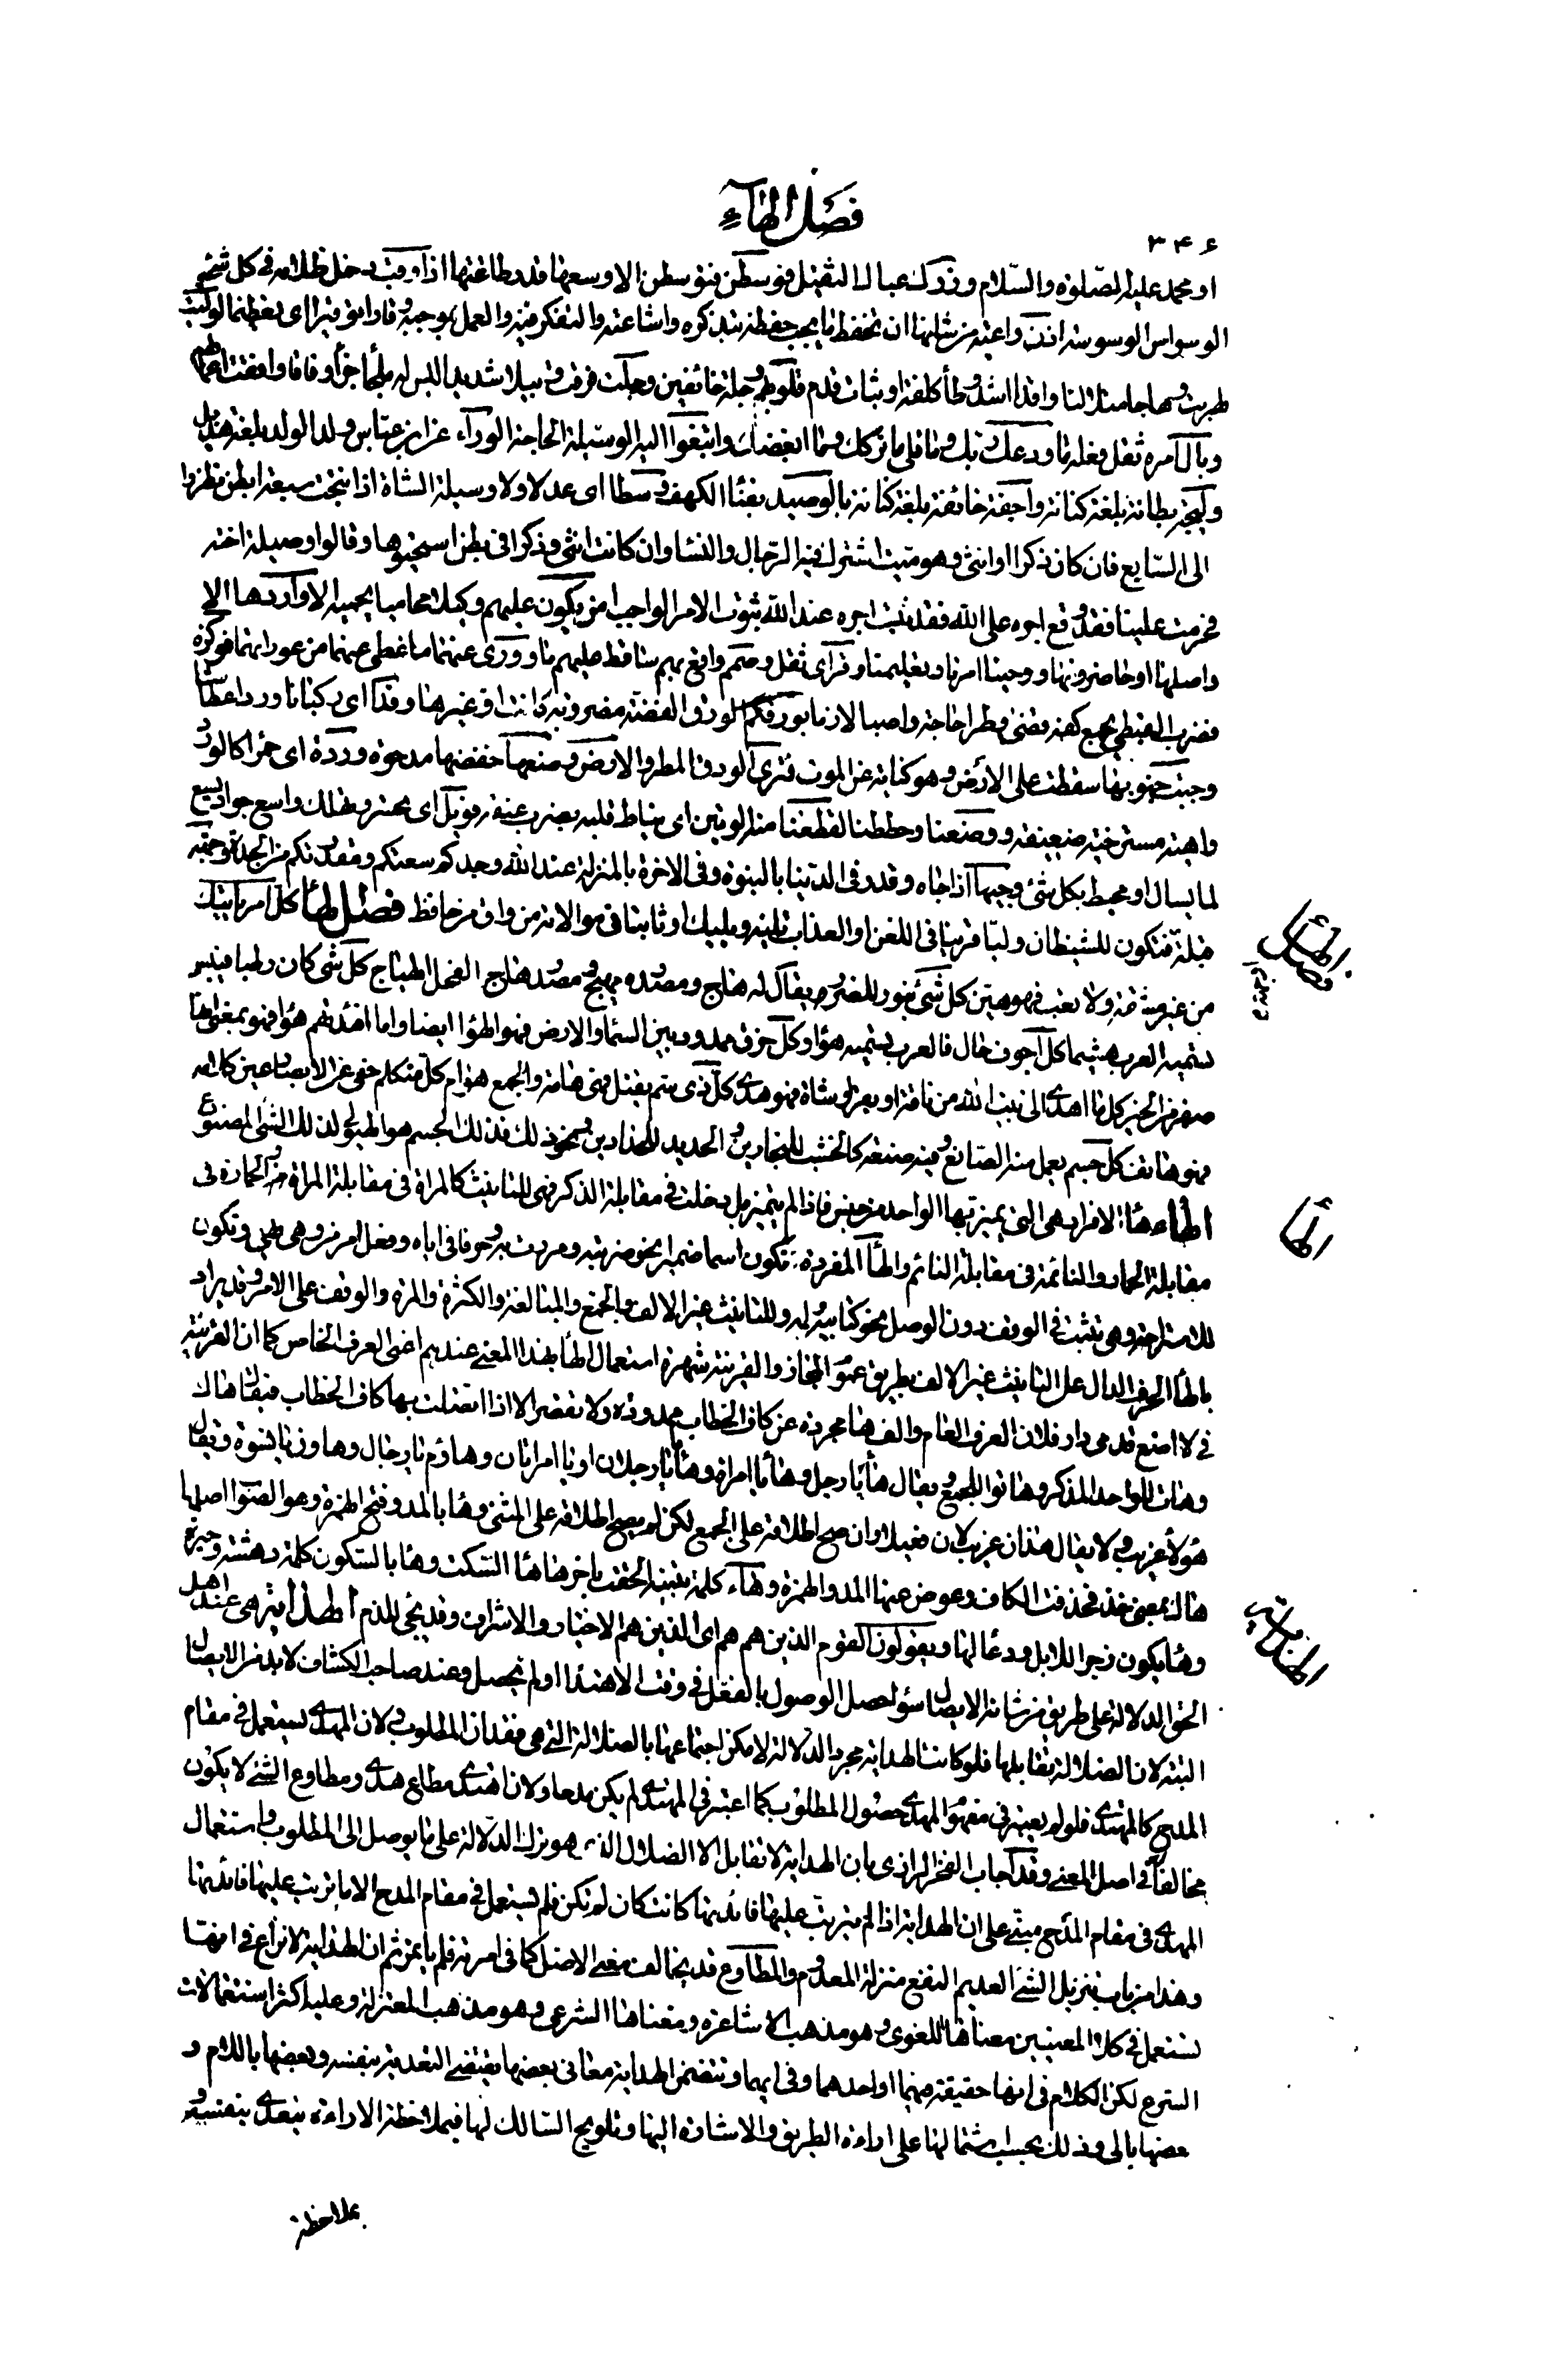 فصل الهاء
٣٤٦
او محمد عليه الصلوة والسلام وزرك عبالك الثقيل فوسطن فتوسطن الا وسعها قدر طاقتها اذا وقب دخل ظلامه في كل شيء
الوسواس الوسوسة اذن واعية من شانها ان تحفظ ما يجب حفظه بتذكره واشاعته والتفكر فيه والعمل بموجبه وقارا توقيرا اى تعظيما
وهاجا متلألئا وقادا اشد وطأ كلفة او ثبات قدم قلوبهم وجلة خائفين وجلت فرقت وبيلا شديدا ليس له ملجأ جزاء وفاقا وافقت اعمالهم
وبال امره ثقل فعله ما ودعك ربك وما قلى ما تركك وما ابغضك وابتغوا اليه الوسيلة الحاجة الوراء عن ابن عباس ولد الولد بلغة هذيل
وليجة بطانة بلغة كنانة واجفة خائفة بلغة كنانة بالوصيد بفناء الكهف وسطا اى عدلا ولا وسيلة الشاة اذا نتجت سبعة ابطن نظروا
الى السابع فان كان ذكرا او انثى وهو ميت اشترك فيه الرجال والنساء وان كانت انثى وذكرا في بطن استحيوها وقالوا وصيلة اخته
فحرمت علينا فقد وقع اجره على الله فقد ثبت اجره عند الله ثبوت الامر الواجب امن يكون عليهم وكيلا محاميا يحميه الا واردها الا
واصلها او حاضر دونها ووحينا امرنا وتعليمنا وقرا اى ثقل وصمم واقع بهم ساقط عليهم ما وورى عنهما ما غطى عنهما من عوراتهما فوكزه
فضرب القبطي بجمع كفه وقضى وطرا حاجة واصبا لازما بورقكم الورق الفضة مضروبة كانت او غيرها وفدا اى ركبانا وردا عطاشا
وجبت جنوبها سقطت على الارض وهو كناية عن الموت فترى الودق المطر والارض وضعها خفضها مدحوة وردة اى حمراء كالورد
واهية مسترخية ضعيفة ووضعنا وحططنا لقطعنا منه الوتين اى نياط قلبه بضرب عنقه ويل اى تحسر وهلك واسع جواد يسع
لما يسأل او محيط بكل شئ وجيها ذا جاه وقدر في الدنيا بالنبوة وفي الآخرة بالمنزلة عند الله وجدكم سعتكم ومقدرتكم من الجدة وجهة
قبلة فتكون للشيطان وليا قرينا في اللعن او العذاب تليه ويليك او ثابتا في موالاته من واق من حافظ فصل الهاء كل امر ياتيك
من غير مشقة ولا تعب فهو هين كل شئ يثور للضرر يقال له هاج ومصدره هيج ومصدر هاج الفحل الهياج كل شئ كان رطبا فيبس
تسميه العرب هشيما كل اجوف خال فالعرب يسميه هواء وكل خرق ممدود بين السماء والارض فهو الهواء ايضا واما افئدتهم هواء فهو بمعنى انها
صفر من الخير كل ما اهدى الى بيت الله من ناقة او بعير او شاة فهو هدى كل ذى سم يقتل فهى هامة والجمع هوام كل متكلم خفى عن الابصار عين كلامه
فهو هاتف كل جسم يعمل منه الصانع وفيه صنعه كالخشب للنجارين والحديد للحدادين ونحو ذلك فذلك الجسم هو الهيولى لذلك الشئ المصنوع
الهاء هاء الافراد هى التى يميز بها الواحد من جنس فاذا لم يتميز بل دخلت في مقابلة الذكر فهى للتانيث كالمراة في مقابلة المرء والحمارة في
مقابلة الحمار والنائمة في مقابلة النائم والهاء المفردة تكون اسما ضميرا نحو ضربته ومررت به وحرفا في اياه وفعل امر من وهى يهى وتكون
للاستراحة وهى تثبت في الوقف دون الوصل نحو كتابيه ولمه وللتانيث غير الالف والجمع والمبالغة والكثرة والمرة والوقف على الامر وقد يراد
بالهاء الحرف الدال على التانيث غير الالف بطريق عموم المجاز والقرينة شهرة استعمال الهاء بهذا المعنى عندهم اعنى العرف الخاص كما ان القرينة
في لا اضع قدمى دار فلان العرف العام والف ها مجردة عن كاف الخطاب ممدودة ولا تقصر الا اذا اتصلت بها كاف الخطاب فيقال هاك
وهات للواحد المذكر وهاتوا للجمع ويقال هاء يا رجل وهاء يا امراة وهاء يا رجلان او يا امراتان وهاؤم يا رجال وهاؤن يا نسوة ويقال
هؤلاء غريب ولا يقال هذان غريب لان فعيلا وان صح اطلاقه على الجمع لكن لم يصح اطلاقه على المثنى وها بالمد وفتح الهمزة وهو الصواب اصلها
هاك بمعنى خذ فحذفت الكاف وعوض عنها المد والهمزة وهاء كلمة تنبيه الحقت باخرها هاء السكت وها بالسكون كلمة دهشة وحيرة
وها يكون زجرا للابل ودعاء لها ويقولون القوم الذين هم هم اى الذين هم الاخيار والاشراف وقد يجئ للذم الهداية هى عند اهل
الحق الدلالة على طريق من شانه الايصال سواء حصل الوصول بالفعل في وقت الاهتداء او لم يحصل وعند صاحب الكشاف لا بد من الايصال
البتة لان الضلالة تقابلها فلو كانت الهداية مجرد الدلالة لامكن اجتماعها بالضلالة التى هى فقدان المطلوب ولان المهدى يستعمل في مقام
المدح كالمهتدى فلو لم يعتبر في مفهوم المهدى حصول المطلوب كما اعتبر في المهتدى لم يكن مدحا ولان اهتدى مطاوع هدى ومطاوع الشئ لا يكون
مخالفا في اصل المعنى وقد اجاب الفخر الرازى بان الهداية لا تقابل الا الضلال الذى هو ترك الدلالة على ما يوصل الى المطلوب واستعمال
المهدى في مقام المدح مبنى على ان الهداية اذا لم يترتب عليها فائدتها كانت كان لم تكن فلم يستعمل في مقام المدح الا ما ترتب عليها فائدتها
وهذا من باب تنزيل الشئ العديم النفع منزلة المعدوم والمطاوع قد يخالف معنى الاصل كما في امرته فلم ياتمر ثم ان الهداية لا نزاع في انها
تستعمل في كلا المعنيين معناها اللغوى وهو مذهب الاشاعرة ومعناها الشرعى وهو مذهب المعتزلة وعليه اكثر استعمالات
الشرع لكن الكلام في انها حقيقة فيهما او احدهما وفي ايهما وتتضمن الهداية معانى بعضها يقتضى التعدية بنفسه وبعضها باللام و
بعضها بالى وذلك بحسب اشتمالها على اراءة الطريق والاشارة اليها وتلويح السالك لها فبملاحظة الاراءة يتعدى بنفسه و
بملاحظة
فصل الهاء
الهاء
الهداية